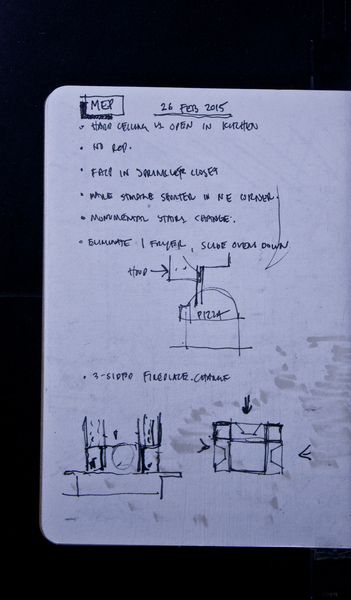 MEP
26 FEB 2015
• HARD CEILING VS OPEN IN KITCHEN
• NO RDP.
• IN SPRINKLER CLOSET
• MAKE SHORTER IN NE CORNER.
• MONUMENTAL STAIRS CHANGE.
• ELIMINATE 1 FRYER, SLIDE OVENS DOWN
HOOD
PIZZA
• 3-SIDED FIREPLACE CHANGE